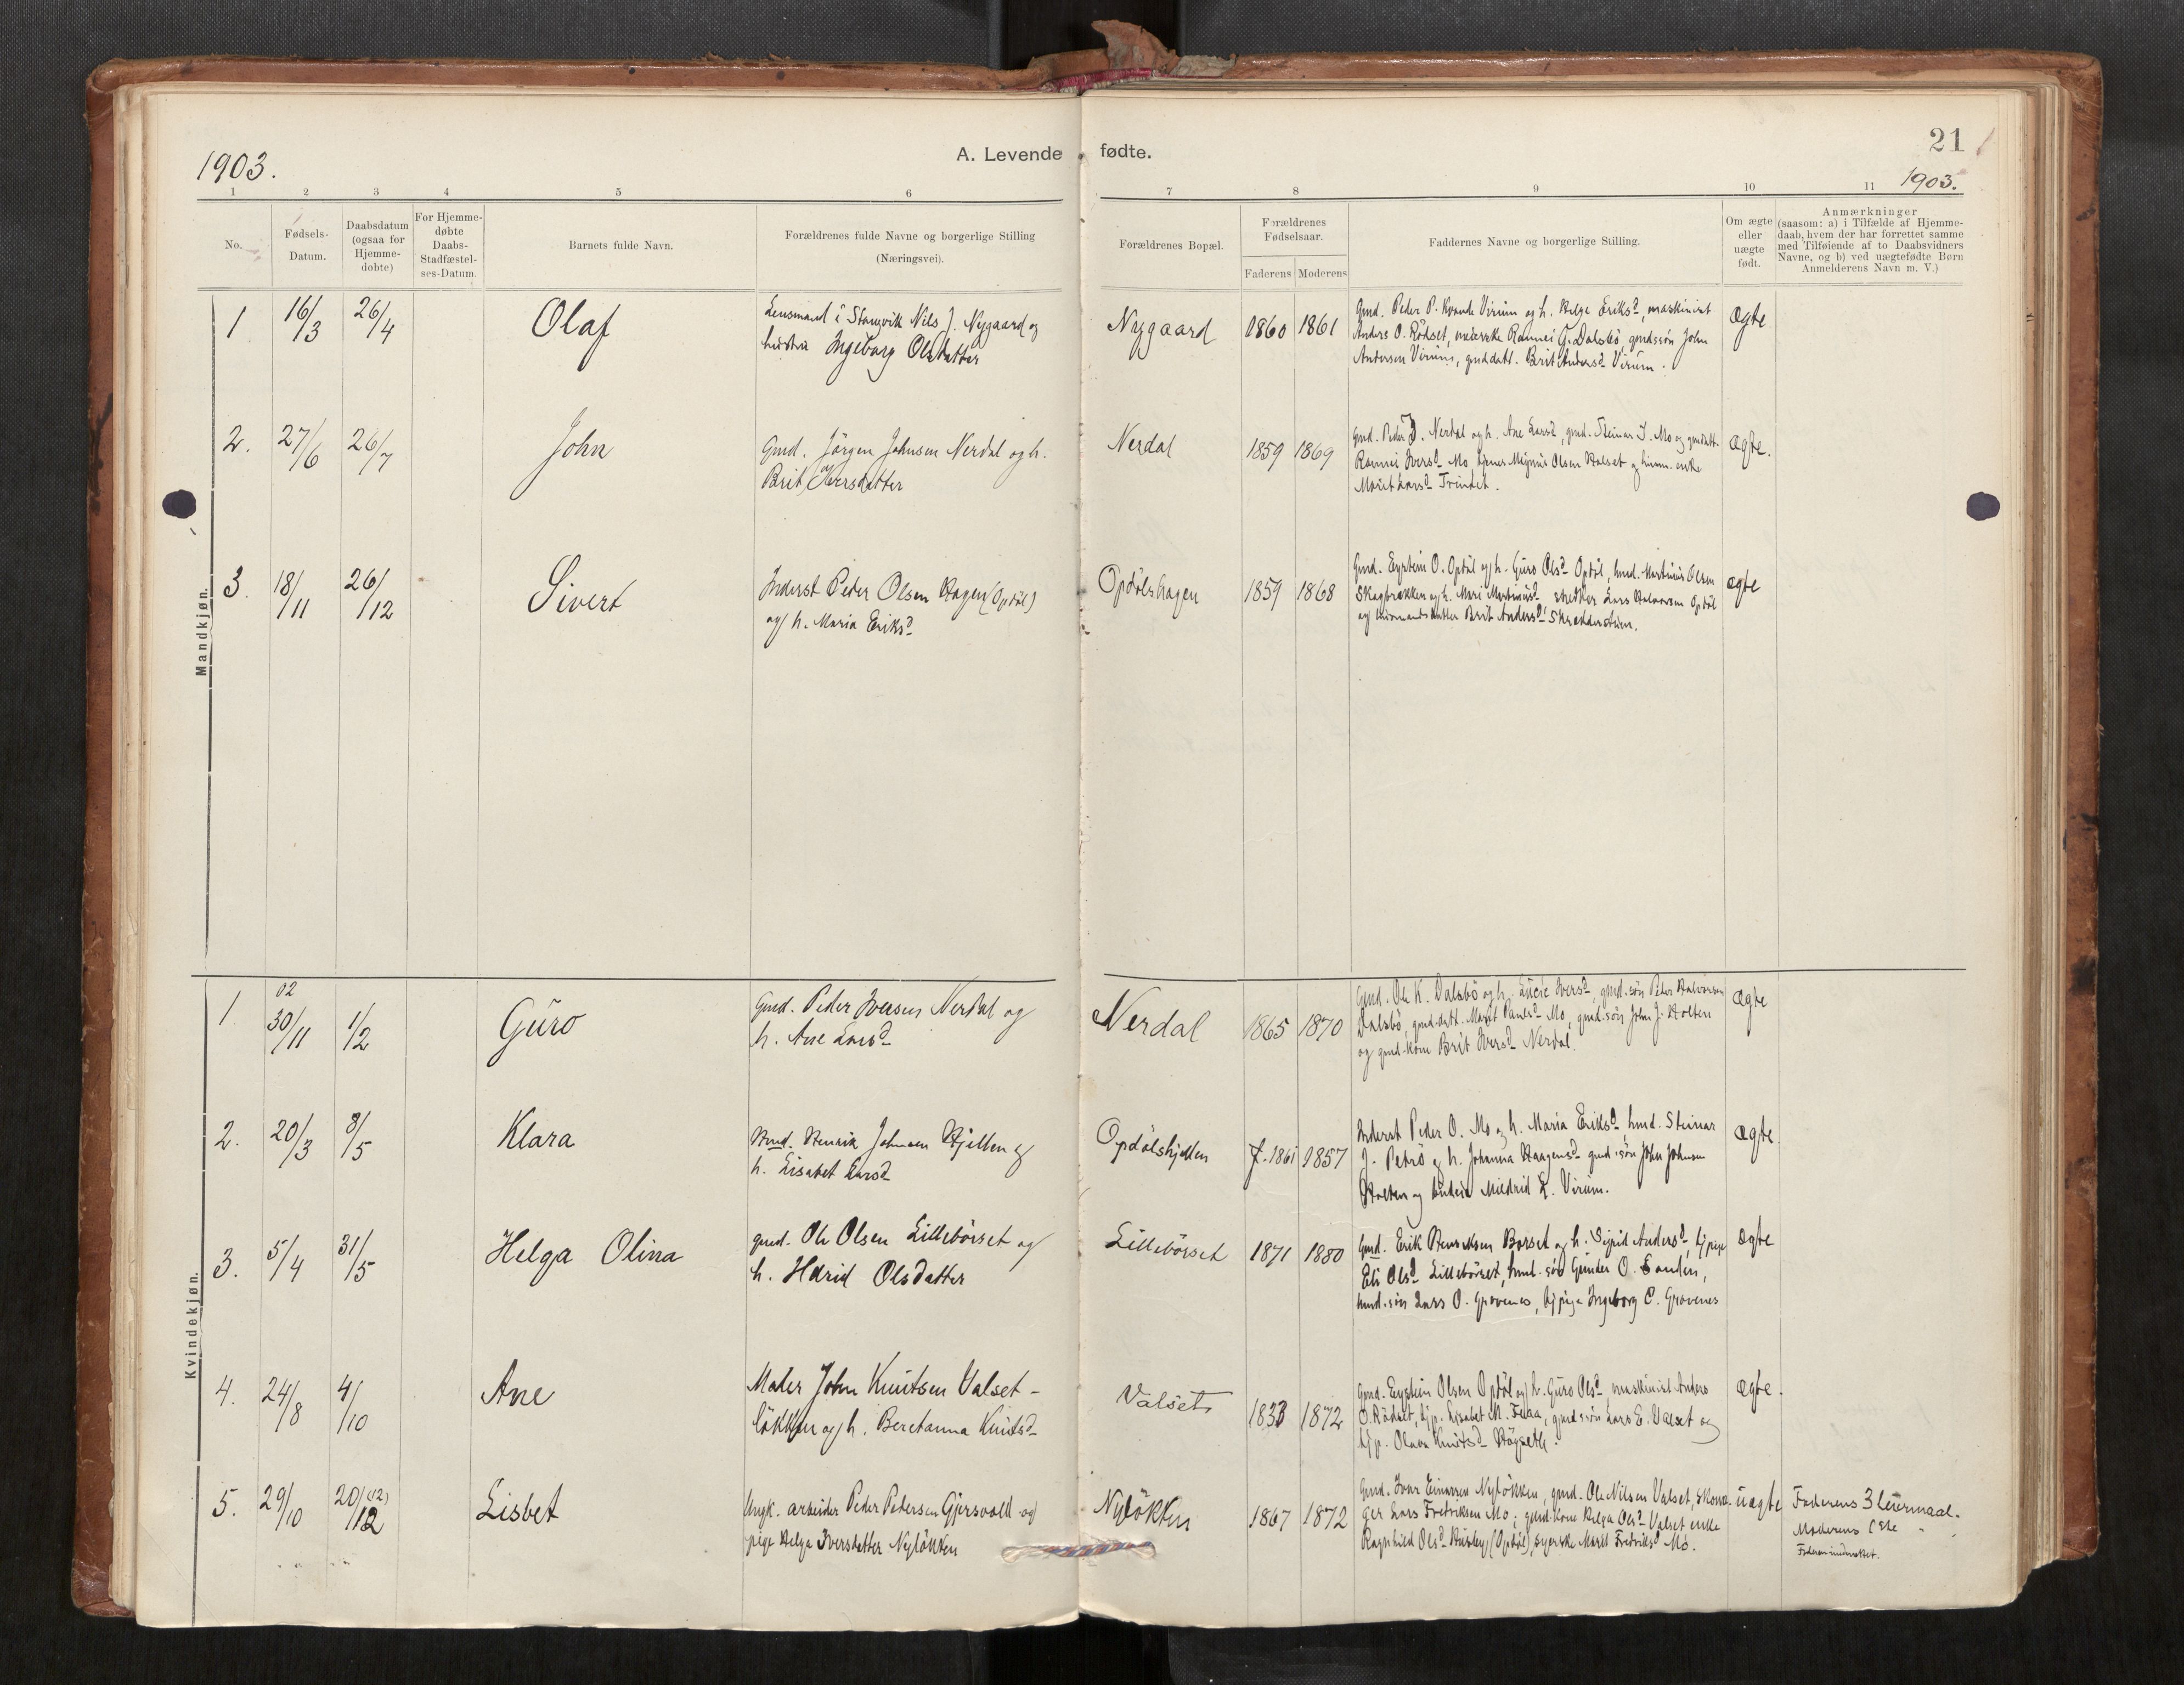 1903.
A. Levende fødte.
21
1903.
1 2 3 4 5 6 7 8 9 10 11
No.
Fødsels-
Datum.
Daabsdatum
(ogsaa for
Hjemme-
døbte)
For Hjemme-
døbte
Daabs-
Stadfæstel-
ses-Datum.
Barnets fulde Navn.
Forældrenes fulde Navne og borgerlige Stilling
(Næringsvei).
Forældrenes Bopæl.
Forældrenes
Fødselsaar.
Faderens Moderens
Faddernes Navne og borgerlige Stilling.
Om ægte
eller
uægte
født.
Anmærkninger
(saasom: a) i Tilfælde af Hjemme-
daab, hvem der har forrettet samme
med Tilføiende af to Daabsvidners
Navne, og b) ved uægtefødte Børn
Anmelderens Navn m. V.)
Mandkjøn.
1 16/3 26/4 Olaf
Lensmand i Stangvik Nils J. Nygaard og
hustru Ingeborg Olsdatter
Nygaard 1860 1861
Gmd. Peder P. Virum og h. Helge Eriksd, maskinist
Anders O. Rödset, meierske Rannei G. Dalsbö, gmdssön John
Andersen Virum, gmddatt. Brit Andersd Virum.
Ægte
2. 27/6 26/7 John
Gmd. Jörgen Johnsen Nerdal og h.
Brit Iversdatter
Nerdal 1859 1869
Gmd. Peder J. Nerdal og h. Ane Larsd, gmd. Steinar J. Mo og gmdatt.
Rannei Iversd Mo, Magnus Olsen Halset og enke
Marit Larsd
Ægte.
3. 18/11 26/12 Sivert
Inderst Peder Olsen Hagen (Opdöl)
og h. Maria Eriksd
Opdölshagen 1859 1868
Gmd. Eystein O. Opdöl og h. Guro Olsd Opdöl, hmd. Martinus Olsen
og h. Mari Martinusd Lars Halvorsen Opdöl
og Brit Andersd
ægte
Kvindekjøn.
1 02 30/11 1/2 Guro
Gmd. Peder Iversen Nerdal og
h. Ane Larsd
Nerdal 1865 1870
Gmd. Ole K. Dalsbö og h. Lucie Iversd, gmd.sön Peder Halvorsen
Dalsbö, gmd.datt. Marit Mo, gmd.sön John J. Holten
og gmd.kone Brit Iversd Nerdal.
Ægte
2. 20/3 8/5 Klara
Hmd. Henrik Johnsen Hjellen og
h. Lisabet Larsd
Opdölshjellen f. 1861 1857
Inderst Peder O. Mo og h. Maria Eriksd hmd. Steinar
J. Petrö og h. Johanna Haagensd gmd.sön John Johnsen
Holten og Mildrid L. Virum.
Ægte.
3. 5/4 31/5 Helga Olina
gmd. Ole Olsen Lillebörset og
h. Olsdatter
Lillebörset 1871 1880
Gmd. Erik Henriksen Borset og h. Sigrid Andersd, tjpige
Eli Olsd Lillebörset, hmd.sön Gunder O. Sanden,
hmd.sön Lars O. Grovenes, tjpige Ingeborg O. Grovenes
Ægte
4. 24/8 4/10 Ane
Maler John Knutsen Valset-
lökken og h. Beretanna Knutsd
Valset 1833 1872
Gmd. Eystein Olsen Opdöl og h. Guro Olsd maskinist Anders
O. Rödset, tjp. Lisabet M. gmdssön Lars E. Valset og
tjp. Olava Knutsd
ægte.
5. 29/10 20/12 (12) Lisbet
Ungk. arbeider Peder Pedersen Gjersvold og
pige Helga Iversdatter Nylökken
Nylökken 1867 1872
Gmd. Ivar Nylökken, gmd. Ole Nilsen Valset, skoma-
ger Lars Fredriksen Mo; gmd.kone Helga Olsd Valset enke
Ragnhild Olsd Husby (Opdöl), syerske Marit Fredriksd Mo.
uægte
Faderens 3 Leiermaal.
Moderens 1ste "